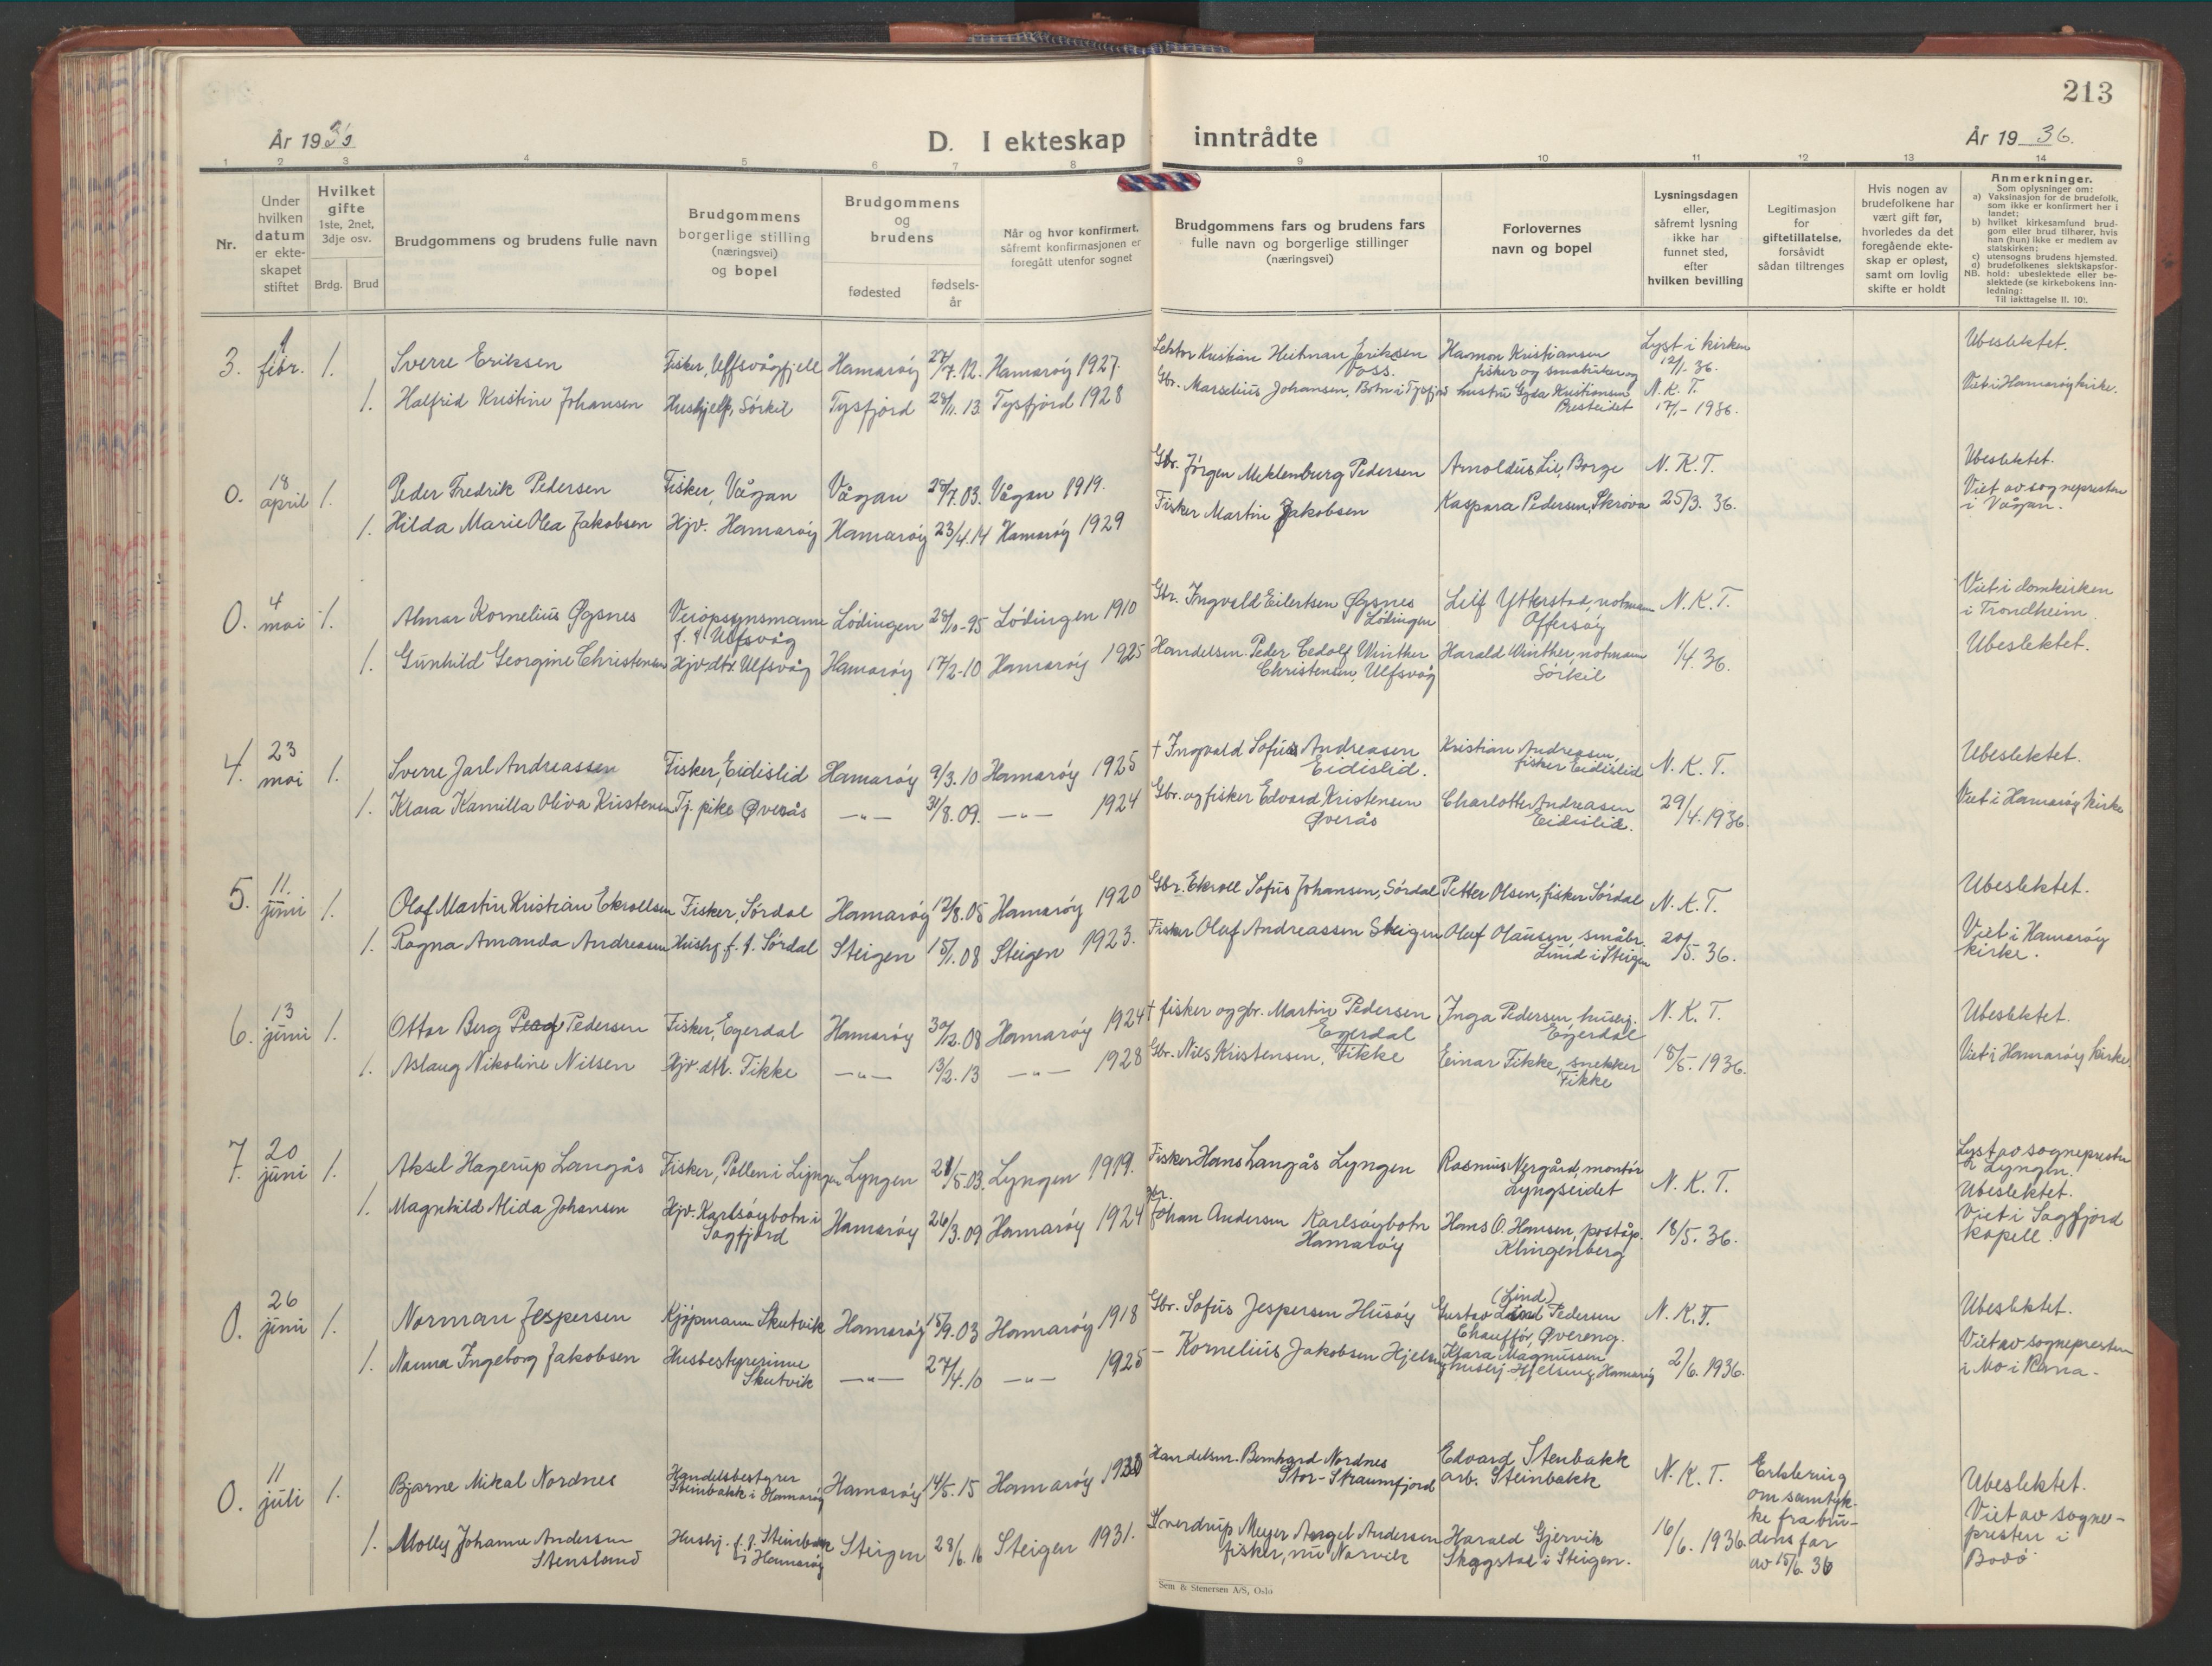 213
År 1936
D. I ekteskap inntrådte
År 1936.
1 2 3 4 5 6 7 8 9 10 11 12 13 14
Nr.
Under hvilken datum er ekteskapet stiftet
Hvilket gifte 1ste, 2net, 3dje osv.
Brdg. Brud
Brudgommens og brudens fulle navn
Brudgommens borgerlige stilling (næringsvei) og bopel
Brudgommens og brudens
fødested
fødsels-år
Når og hvor konfirmert, såfremt konfirmasjonen er foregått utenfor sognet
Brudgommens fars og brudens fars fulle navn og borgerlige stillinger (næringsvei)
Forlovernes navn og bopel
Lysningsdagen eller, såfremt lysning ikke har funnet sted, efter hvilken bevilling
Legitimasjon for giftetillatelse, forsåvidt sådan tiltrenges
Hvis nogen av brudefolkene har vært gift før, hvorledes da det foregående ekteskap er opløst, samt om lovlig skifte er holdt
Anmerkninger.
Som oplysninger om:
a) Vaksinasjon for de brudefolk, som ikke er konfirmert her i landet;
b) hvilket kirkesamfund brudgom eller brud tilhører, hvis han (hun) ikke er medlem av statskirken;
c) utensogns brudens hjemsted.
d) brudefolkenes slektskapsforhold: ubeslektede eller beslektede (se kirkebokens innledning:
NB. Til iakttagelse II. 10).
3. 1 febr. 1. Sverre Eriksen Fisker, Ulfsvågfjell Hamarøy 27/7.12. Hamarøy 1927. Lektor Kristian Heitman Eriksen Voss. Hamon Kristiansen fisker og småbruker og Lyst i kirken 12/1-36. Ubeslektet.
1. Halfrid Kristine Johansen Hushjelp, Sørkil Tysfjord 28/11.13. Tysfjord 1928 Gbr. Marselius Johansen, Botn i Tysfjord hustru Gyda Kristiansen Presteidet N.K.T. 17/1-1936. Viet i Hamarøy kirke.
0. 18 april 1. Peder Fredrik Pedersen Fisker, Vågan Vågan 28/7.03. Vågan 1919. Gbr. Jørgen Meklenburg Pedersen Arnoldus Lie, Borge N.K.T. Ubeslektet.
1. Hilda Marie Olea Jakobsen Hjv. Hamarøy Hamarøy 23/4.14 Hamarøy 1929 Fisker Martin Jakobsen Kaspara Pedersen, Skrova 25/3. 36. Viet av sognepresten i Vågan.
0. 4 mai 1. Almar Kornelius Øgsnes Veiopsynsmann f. t. Ulfsvåg Lødingen 28/10-95 Lødingen 1910 Gbr. Ingvald Eilertsen Øgsnes Lødingen Leif Ytterstad, notmann Offersøy N.K.T. Viet i domkirken i Trondheim.
1. Gunhild Georgine Christensen Hjv. dtr. Ulfsvåg Hamarøy 17/2-10 Hamarøy 1925 Handelsm. Peder Cedolf Winther Christensen, Ulfsvåg Harald Winther, notmann Sørkil 1/4. 36. Ubeslektet.
4. 23 mai 1. Sverre Jarl Andreassen Fisker, Eidislid Hamarøy 9/3.10 Hamarøy 1925 † Ingvald Sofus Andreasen Eidislid. Kristian Andreasen, fisker Eidislid N.K.T. Ubeslektet.
1. Klara Kamilla Oliva Kristensen Tj. pike Øverås —"— 31/8.09. —"— 1924 Gbr. og fisker Edvard Kristensen Øverås Charlotte Andreasen Eidislid. 29/4.1936. Viet i Hamarøy kirke
5. 11. juni 1. Olaf Martin Kristian Ekrollsen Fisker, Sørdal Hamarøy 12/8.05 Hamarøy 1920 Gbr. Ekroll Sofus Johansen, Sørdal Petter Olsen, fisker Sørdal N.K.T. Ubeslektet.
1. Ragna Amanda Andreasen Hushj. f. t. Sørdal Steigen 15/1.08 Steigen 1923. Fisker Olaf Andreassen Steigen Olaf Olausen, småbr. Lund i Steigen 20/5. 36. Viet i Hamarøy kirke.
6. 13 juni 1. Ottar Berg Pedersen Fisker, Egerdal Hamarøy 30/12.08 Hamarøy 1924 † fisker og gbr. Martin Pedersen Egerdal Inga Pedersen hushj. Egerdal N.K.T. Ubeslektet.
1. Aslaug Nikoline Nilsen Hjv. dtr. Fikke —"— 13/2.13 —"— 1928 Gbr. Nils Kristensen, Fikke Einar Fikke, snekker Fikke 18/5-1936. Viet i Hamarøy kirke.
7. 20 juni 1. Aksel Hagerup Langås Fisker, Pollen i Lyngen Lyngen 21/5.03. Lyngen 1919. Fisker Hans Langås Lyngen Rasmus Nergård, montør Lyngseidet N.K.T. Lyst av sognepresten i Lyngen. Ubeslektet.
1. Magnhild Alida Johansen Hjv. Karlsøybotn i Sagfjord Hamarøy 26/3.09 Hamarøy 1924 gbr. Johan Andersen Karlsøybotn Hamarøy Hans O. Hansen, poståp. Klingenberg 18/5. 36. Viet i Sagfjord kapell.
0. 26 juni 1. Norman Jespersen Kjøpmann Skutvik Hamarøy 15/9.03 Hamarøy 1918 Gbr. Sofus Jespersen Husøy Gustav (Lind) Pedersen Chauffør, Øvereng. N.K.T. Ubeslektet.
1. Nanna Ingeborg Jakobsen Husbestyrerinne Skutvik —"— 27/4.10 —"— 1925 — Kornelius Jakobsen Hjelsvig Klara Magnussen hushj. Hjelsvig, Hamarøy 2/6.1936. Viet av sognepresten i Mo i Rana.
0. 11 juli 1. Bjarne Mikal Nordnes Handelsbestyrer Steinbakk i Hamarøy Hamarøy 14/5.15 Hamarøy 1930 Handelsm. Bernhard Nordnes Stor-Straumfjord Edvard Stenbakk arb. Steinbakk N.K.T. Erklæring om samtykke fra brudens far av 15/6.36 Ubeslektet.
1. Molley Johanne Andersen Stensland Hushj. f. t. Steinbakk i Hamarøy Steigen 28/6.16 Steigen 1931. Sverdrup Meyer Angel Andersen fisker, nu Narvik Harald Gjervik Skagstad i Steigen. 16/6.1936. Viet av sognepresten i Bodø
Sem & Stenersen A/S, Oslo